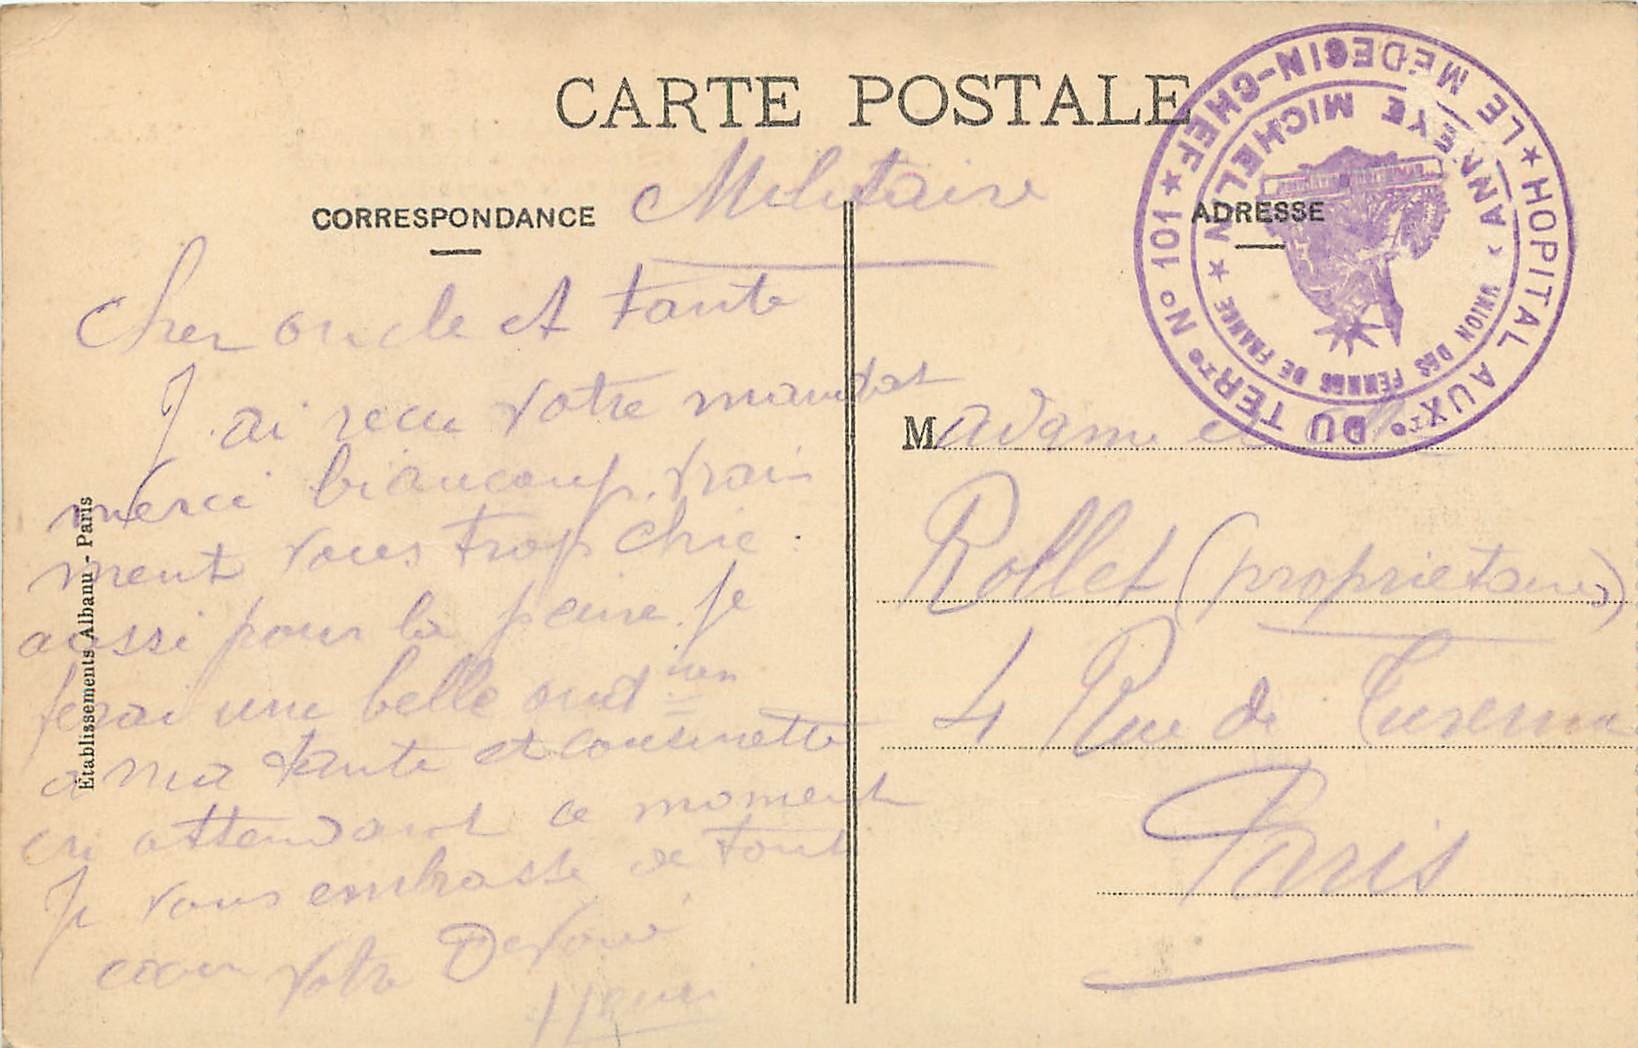 CARTE POSTALE
Militaire
CORRESPONDANCE
Cher oncle et tante
J'ai recu votre mandat
merci biaucoup. vrai
ment vous trop chic.
aussi pour la peine. je
ferai une belle
a ma tante et cousinette
en attendant ce moment
Je vous embrasse de tout
cœur votre Devoué
Henri
Établissements Albanu - Paris
ADRESSE
Madame et
Rollet (proprietaire)
4 Rue de Turenne
Paris
★ HOPITAL AUXre DU TERre No 101 ★ LE MEDECIN-CHEF
ANNEXE MICHELIN ★ UNION DES FEMMES DE FRANCE ★